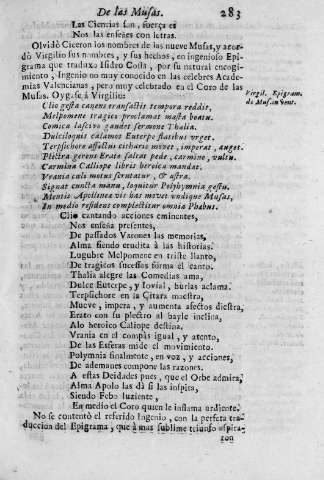 De las Musas.
283
Las Ciencias son, fuerça es
Nos las enseñes con letras.
Olvidò Ciceron los nombres de las nueve Musas, y acor-
dò Virgilio sus nombres, y sus hechos, en ingenioso Epi-
grama que traduxo Isidro Costa, por su natural encogi-
miento, Ingenio no muy conocido en las celebres Acade-
mias Valencianas, pero muy celebrado en el Coro de las
Musas. Oygase à Virgilio:
Virgil. Epigram.
de Musar. Invent.
Clio gesta canens transactis tempora reddit,
Melpomene tragico proclamat mæsta boatu.
Comica lascivo gaudet sermone Thalia.
Dulciloquis calamos Euterpe flatibus vrget.
Terpsichore affectus citharis movet, imperat, auget.
Plectra gerens Erato saltat pede, carmine, vultu.
Carmina Calliope libris heroica mandat.
Vrania cæli motus scrutatur, & astra.
Signat cuncta manu, loquitur Polyhymnia gestu.
Mentis Apolinea vis has movet vndique Musas,
In medio residens complectitur omnia Phœbus.
Clio cantando acciones eminentes,
Nos enseña presentes,
De passados Varones las memorias,
Alma siendo erudita à las historias.
Lugubre Melpomene en triste llanto,
De tragicos sucessos forma el canto.
Thalia alegre las Comedias ama,
Dulce Euterpe, y Iovial, burlas aclama.
Terpsichore en la Citara maestra,
Mueve, impera, y aumenta afectos diestra,
Erato con su plectro al bayle inclina,
Alo heroico Caliope destina,
Vrania en el compàs igual, y atento,
De las Esferas mide el movimiento.
Polymnia finalmote, en voz, y acciones,
De ademanes compone las razones.
A estas Deidades pues, que el Orbe admira,
Alma Apolo las dà si las inspira,
Siendo Febo luziente,
En medio el Coro quien le inflama ardiente.
No se contentò el referido Ingenio, con la perfeta tra-
duccion del Epigrama, que à mas sublime triunfo aspira-
ron